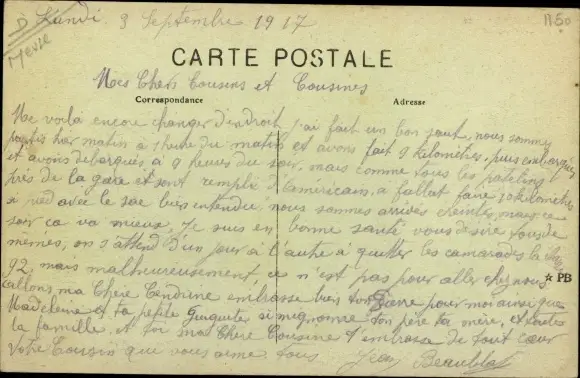 Lundi 3 Septembre 1917
Meuse
A50
CARTE POSTALE
Mes Chers Cousins et Cousines
Correspondance Adresse
Me voilà encore changer d'endroit j'ai fait un bon saut, nous sommes
partis hier matin a heure du matin et avons fait 9 kilomètres, puis embarqués
et avons débarqués à 9 heures du soir, mais comme tous les patelins
près de la gare et sont rempli d'américain, a fallut faire kilomètres
a pied avec le sac bien entendue. nous sommes arrivés éreintés, mais ce
soir ça va mieux, Je suis en bonne santé vous désire tous de
mêmes, on s'attend d'un jour à l'autre a quitter les camarades la
92, mais malheureusement ce n'est pas pour aller chez nous
PB
allons, ma Chère embrasse bien ton Pierre pour moi ainsi que
Madeleine et ta petite si mignonne ton père ta mère, et toutes
la famille, et toi ma Chère Cousine t'embrasse de tout cœur
Votre Cousin que vous aime tous Jean